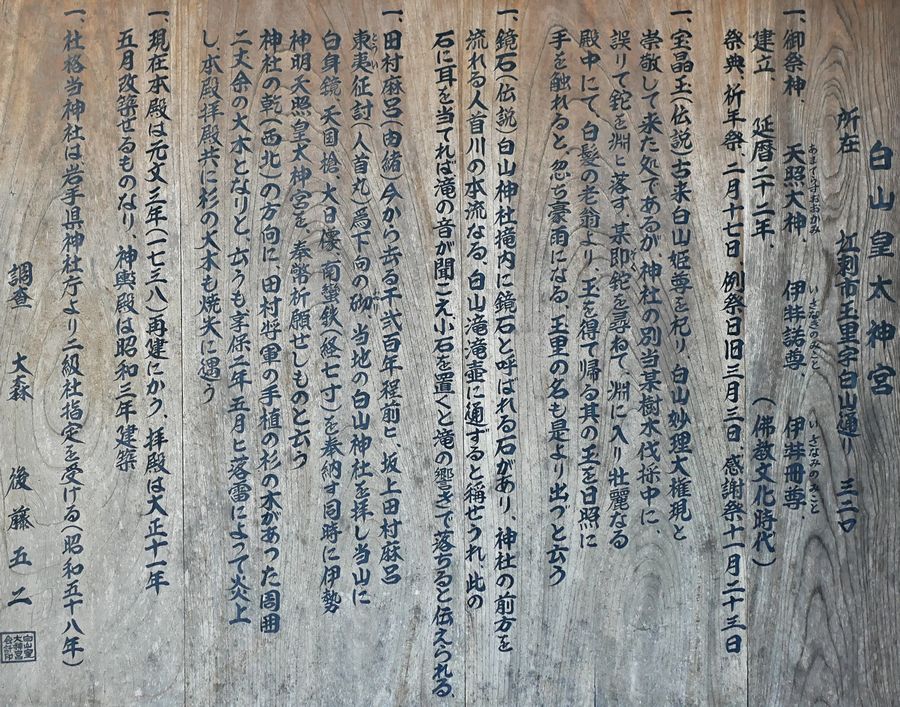 白山皇太神宮
所在　江刺市玉里字白山通り　三二口
一、御祭神、天照大神、伊弉諾尊　伊弉冊尊、
あまてらすおおかみ　いさなぎのみこと　いさなみのみこと
建立、延暦二十二年、（佛教文化時代）
祭典　祈年祭　二月十七日　例祭日旧三月三日　感謝祭十一月二十三日
一、宝晶玉（伝説）古来白山姫尊を祀り、白山妙理大権現と
崇敬して来た処であるが、神社の別当某樹木伐採中に、
誤りて鉈を淵ヒ落す、某即鉈を尋ねて、淵に入り壮麗なる
殿中にて、白髪の老翁より、玉を得て帰る其の玉を日照に
手を触れると、忽ち豪雨になる、玉里の名も是より出づと云う
一、鏡石（伝説）白山神社境内に鏡石と呼ばれる石があり、神社の前方を
流れる人首川の本流なる、白山滝滝壷に通ずると稱せられ、此の
石に耳を当てれば滝の音が聞こえ小石を置くと滝の響きで落ちると伝えられる
一、田村麻呂（由緒）今から去る千弐百年程前ヒ、坂上田村麻呂
東夷征討（人首丸）為下向の砌、当地の白山神社を拝し当山に
とうい　みぎり
白身鏡、天国槍、大日優、南蛮鉄（経七寸）を奉納す同時に伊勢
神明天照皇太神宮を、奉幣祈願せしものと云う
神社の乾（西北）の方向に、田村将軍の手植の杉の木があった周囲
二丈余の大木となりと、云うも享保二年五月ヒ落雷によって炎上
し、本殿拝殿共に杉の大木も焼失に遇う
一、現在本殿は元文三年（一七三八）再建にかう、拝殿は大正十一年
五月改築せるものなり、神輿殿は昭和三年建築
一、社格当神社は岩手県神社庁より二級社指定を受ける（昭和五十八年）
調査　大森　後藤五二